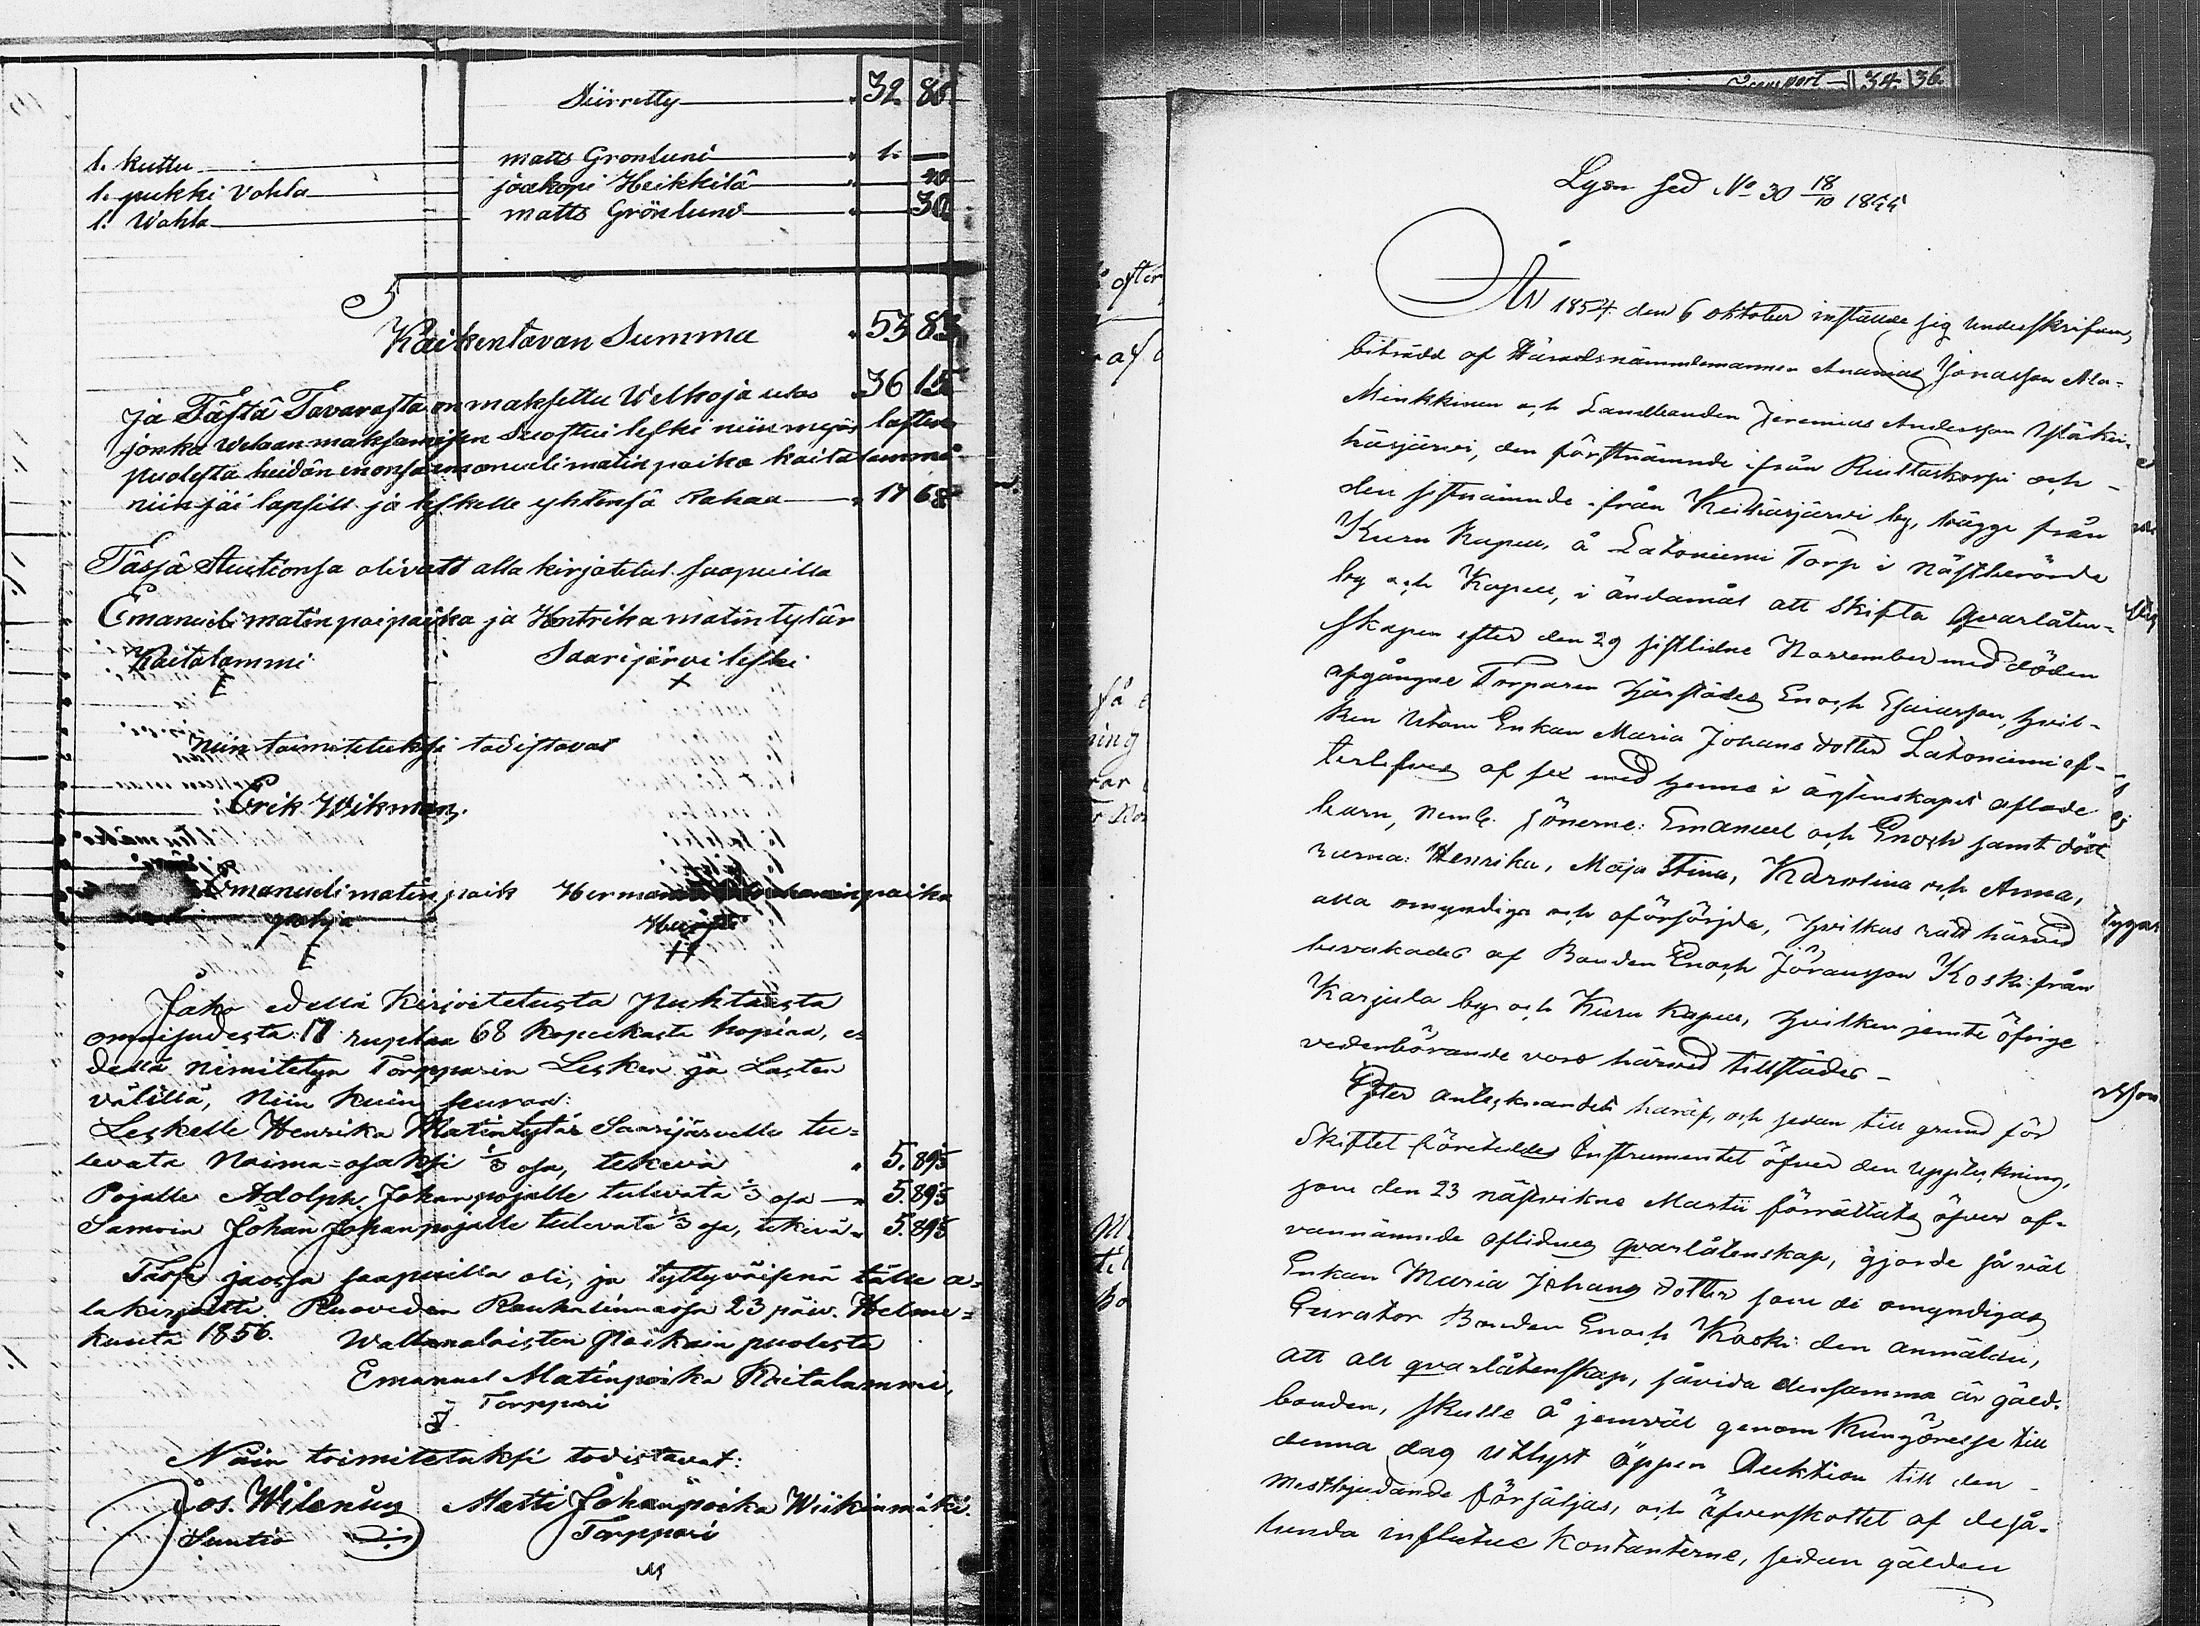 Siirretty 32. 86
1. kuttu matts Gronluni 1. —
1. pukki Vohla jaakopi Heikkilä 40
1. Wohla matts Grönlund 30
Kaikentavan Summa 53 83
ja Tästä Tavarasta on maksettu Welkoja ulos 36 15
jonka Welaan maksamisen Suostui leski niin myös lasten
puolesta heidän enonsa emanueli matin poika kaitalammi
niin jäi lapsill ja leskelle yhtensä Rahaa 17 68
Täsjä Auctionsa olivatt alla kirjotetut saapuilla
Emanueli matin poipaika ja Hentrika matin tytär
Kaitalammi Saarijärvi leski
niin toimitetuksi todistavat
Erik Wikman,
Emanueli matin poik Herman poika
pohja
Jako edellä Kirjoitetusta Puhtaasta
omaisudesta: 17 ruplaa 68 kopeekasta hopiaa, e-
dellä nimitetyn Torpparin Lesken ja Lasten
välillä, Niin kuin seuraa:
Leskelle Henrika Matintytär Saarijärvelle tu=
levata Naima=osaksi 1/3 osa, tekevä " 5. 89 1/3
Pojalle Adolph Johanpojalle tulevata 1/3 osa — " 5. 89 1/3
Samoin Johan Johanpojalle tulevata 1/3 osa, tekevä " 5. 89 1/3
Tässä jaossa saapuilla oli, ja tyttyväisenä tälle a=
lakirjoitti. Ruoveden Rauhalinnassa 23 päiv. Helme=
kuuta 1856. Wallanalaisten Poikain puolesta
Emanuel Matinpoika Kaitalammi,
Torppari
Näin toimitetuksi todistavat:
Jos. Wilenius Matti Johanpoika Wiikinmäki.
Suntio Torppari
Transport 34. 36.
Lysn sed No 30 18/10 18
År 1854 den 6 oktober instälde sig Underskrifven,
biträdd af Häradsnämndemannen Ananias Jönasson Ala-
Minkkinen och Landbonden Jeremias Andersson Yläkei-
häsjärvi, den förstnämnde ifrån Riuttaskorpi och –
den sistnämnde ifrån Keihäsjärvi by, bägge från
Kuru Kapell, å Latoniemi Torp i nästberörde
by och Kapell, i ändamål att skifta qvarlåten-
skapen efter den 29 sistlidne November med döden
afgångne Torparen härstädes Enoch Esaiasson, hvil-
ken utom Enkan Maria Johans dotter Latoniemi ef-
terlefves af sex med henne i ägtenskapet aflade
barn, neml. sönerne: Emanuel och Enoch samt dött
rarna: Henrika, Maja Stina, Karolina och Anna,
alla omyndiga och oförsörjda, hvilkas rätt härvid
bevakades af Bonden Enoch Jöransson Koski från
Karjula by och Kuru Kapell, hvilken jemte öfrige
vederbörande voro härvid tillstädes –
Efter anteknandet häraf, och sedan till grund för
Skiftet företeddes Instrumentet öfver den uppteckning,
som den 23 nästvikne Martii förrättats öfver of-
vannämnde aflidnes qvarlåtenskap, gjorde så väl
Enkan Maria Johans dotter som de omyndigas
Curator Bonden Enoch Koski den anmälan,
att all qvarlåtenskap, såvida densamma är gäld-
bonden, skulle å jemväl genom Kungörelse till
denna dag utlyst öppen Auktion till den –
Mestbjudande försäljas, och öfverskottet af deså-
lunda influtne Kontanterne, sedan gälden